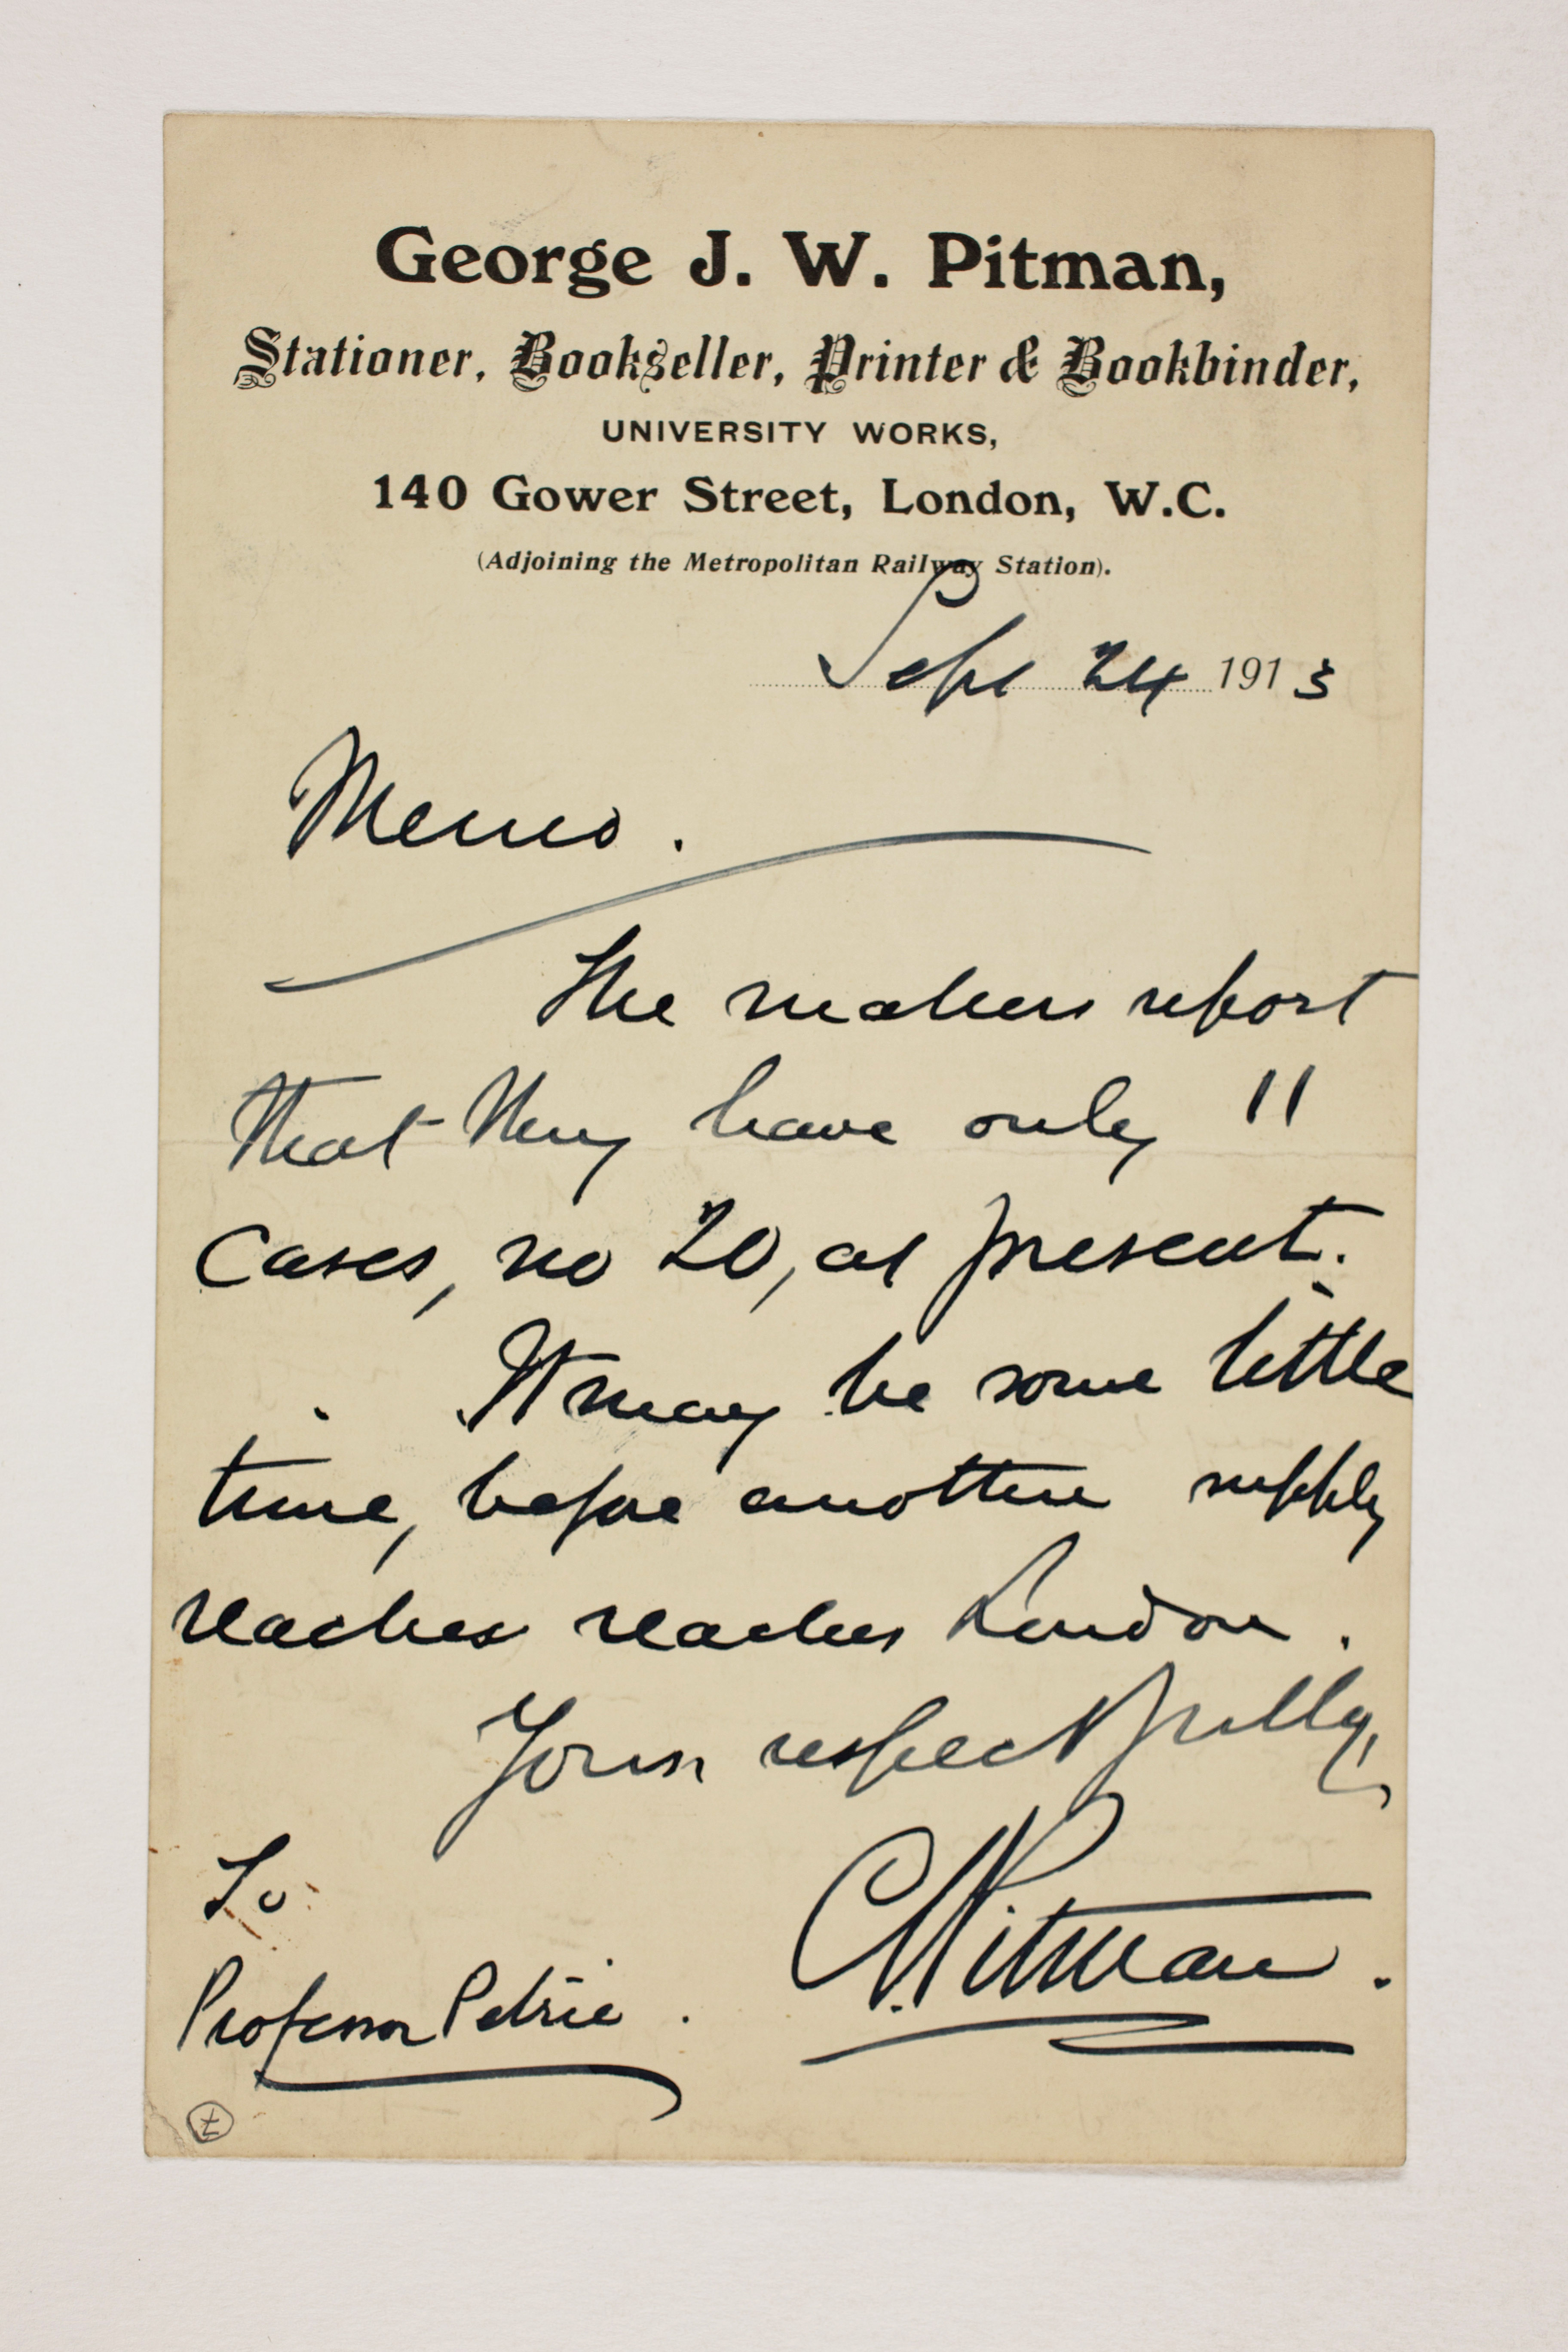 George J. W. Pitman,
Stationer, Bookseller, Printer & Bookbinder,
UNIVERSITY WORKS,
140 Gower Street, London, W.C.
(Adjoining the Metropolitan Railway Station).
Sept 24 1913
Memo.
The makers report
that they have only 11
Cases, no 20, at present.
It may be some little
time, before another supply
reaches reaches London.
Yours respectfully,
To
Pitman.
Professor Petrie.